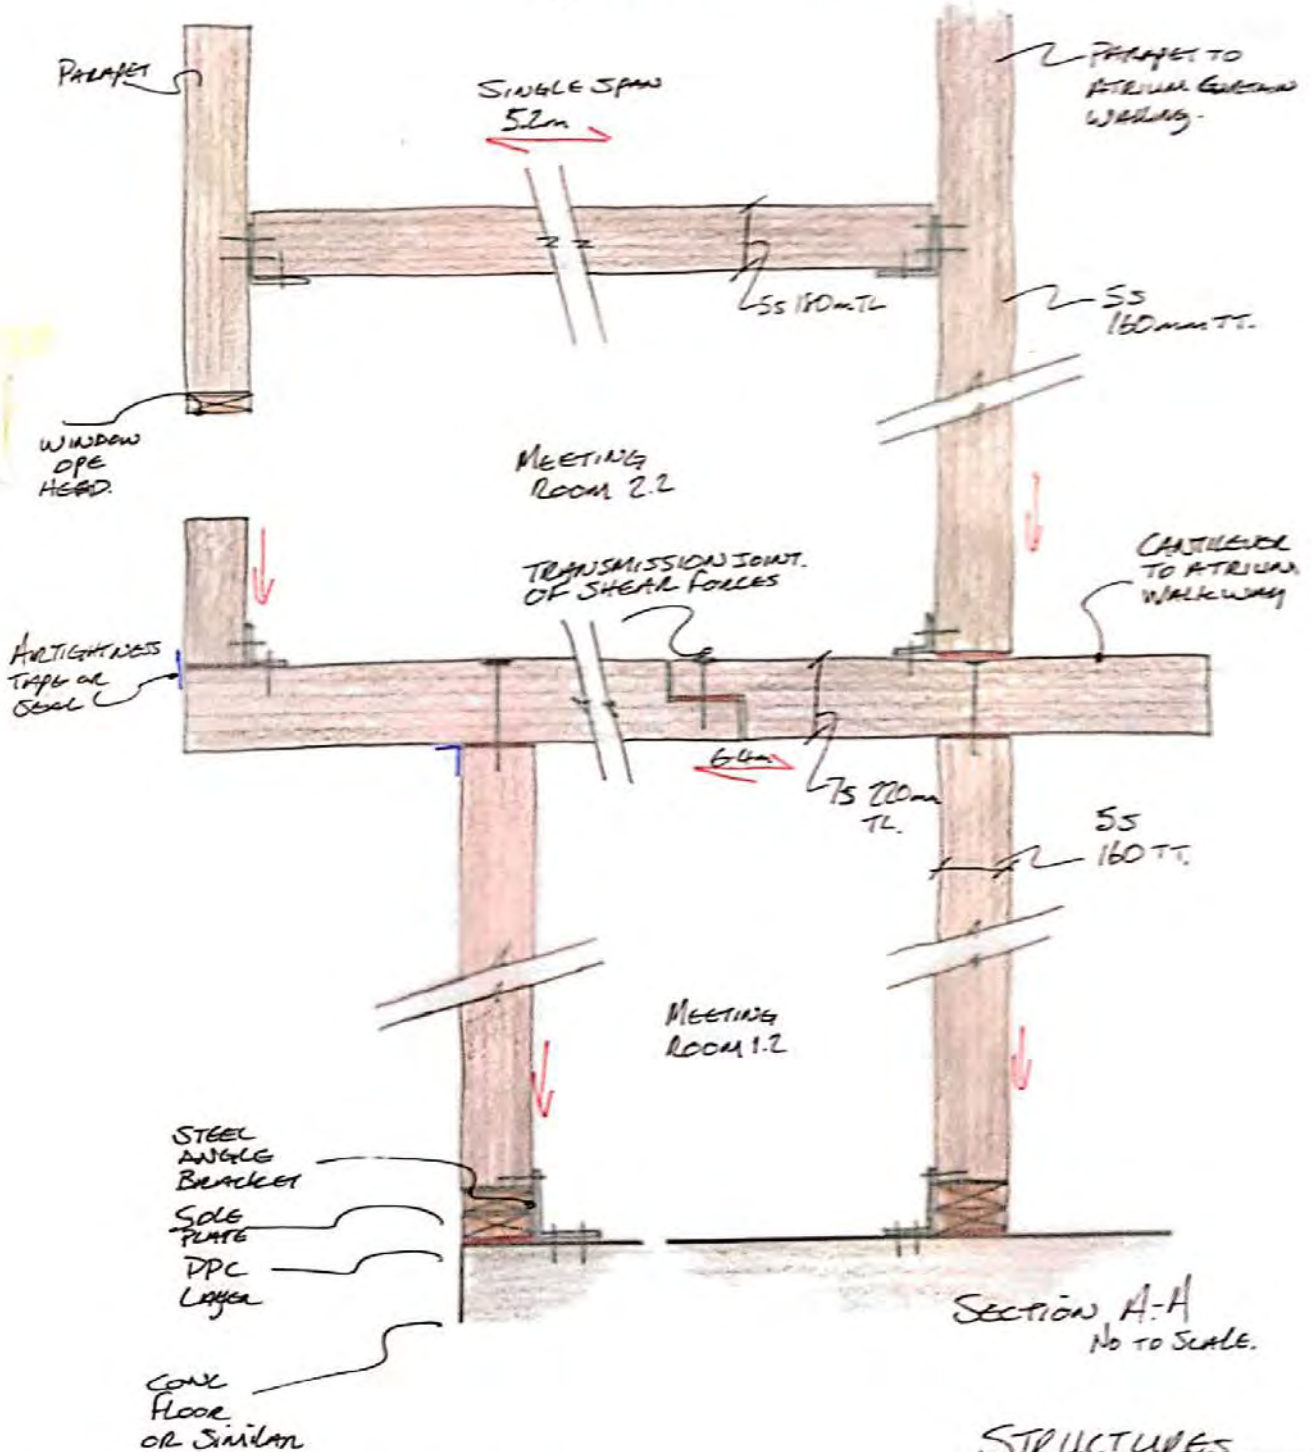 PARAPET
SINGLE SPAN
5.2m
PARAPET TO
ATRIUM CURTAIN
WALLING.
5s 180mm TL
5s
160mm TT.
WINDOW
OPE
HEAD.
MEETING
ROOM 2.2
TRANSMISSION JOINT.
OF SHEAR FORCES
CANTILEVER
TO ATRIUM
WALKWAY
AIRTIGHTNESS
TAPE OR
SEAL
6.4m
7s 220mm
TL.
5s
160 TT.
MEETING
ROOM 1.2
STEEL
ANGLE
BRACKET
SOLE
PLATE
DPC
LAYER
CONC
FLOOR
OR SIMILAR
SECTION A-A
NO TO SCALE.
STRUCTURES